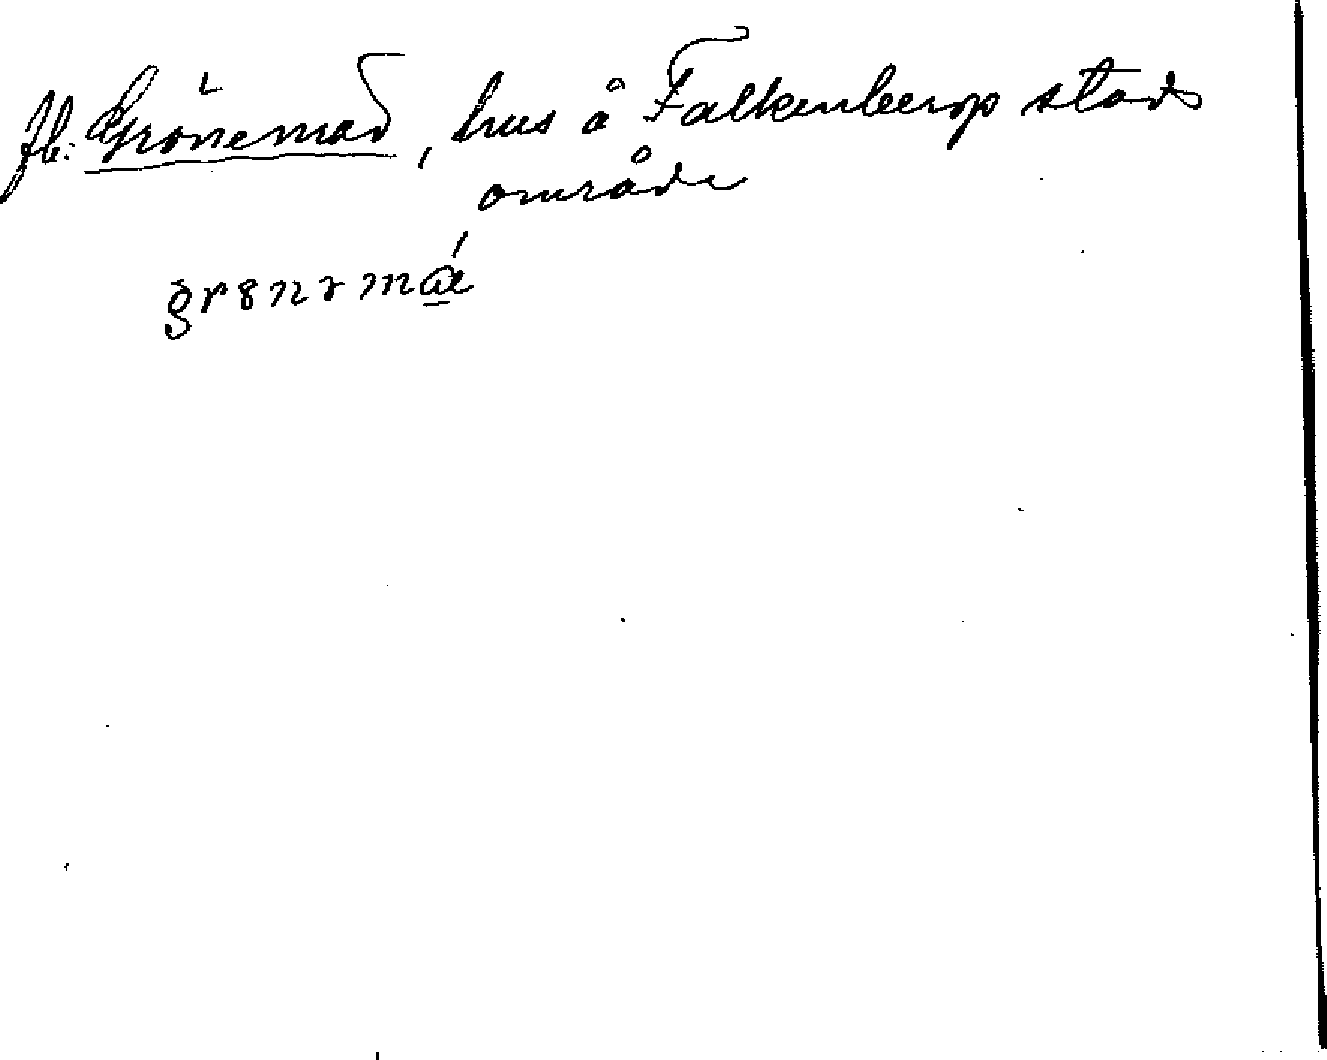 fb: Grönemad, hus å Falkenbergs stads
område